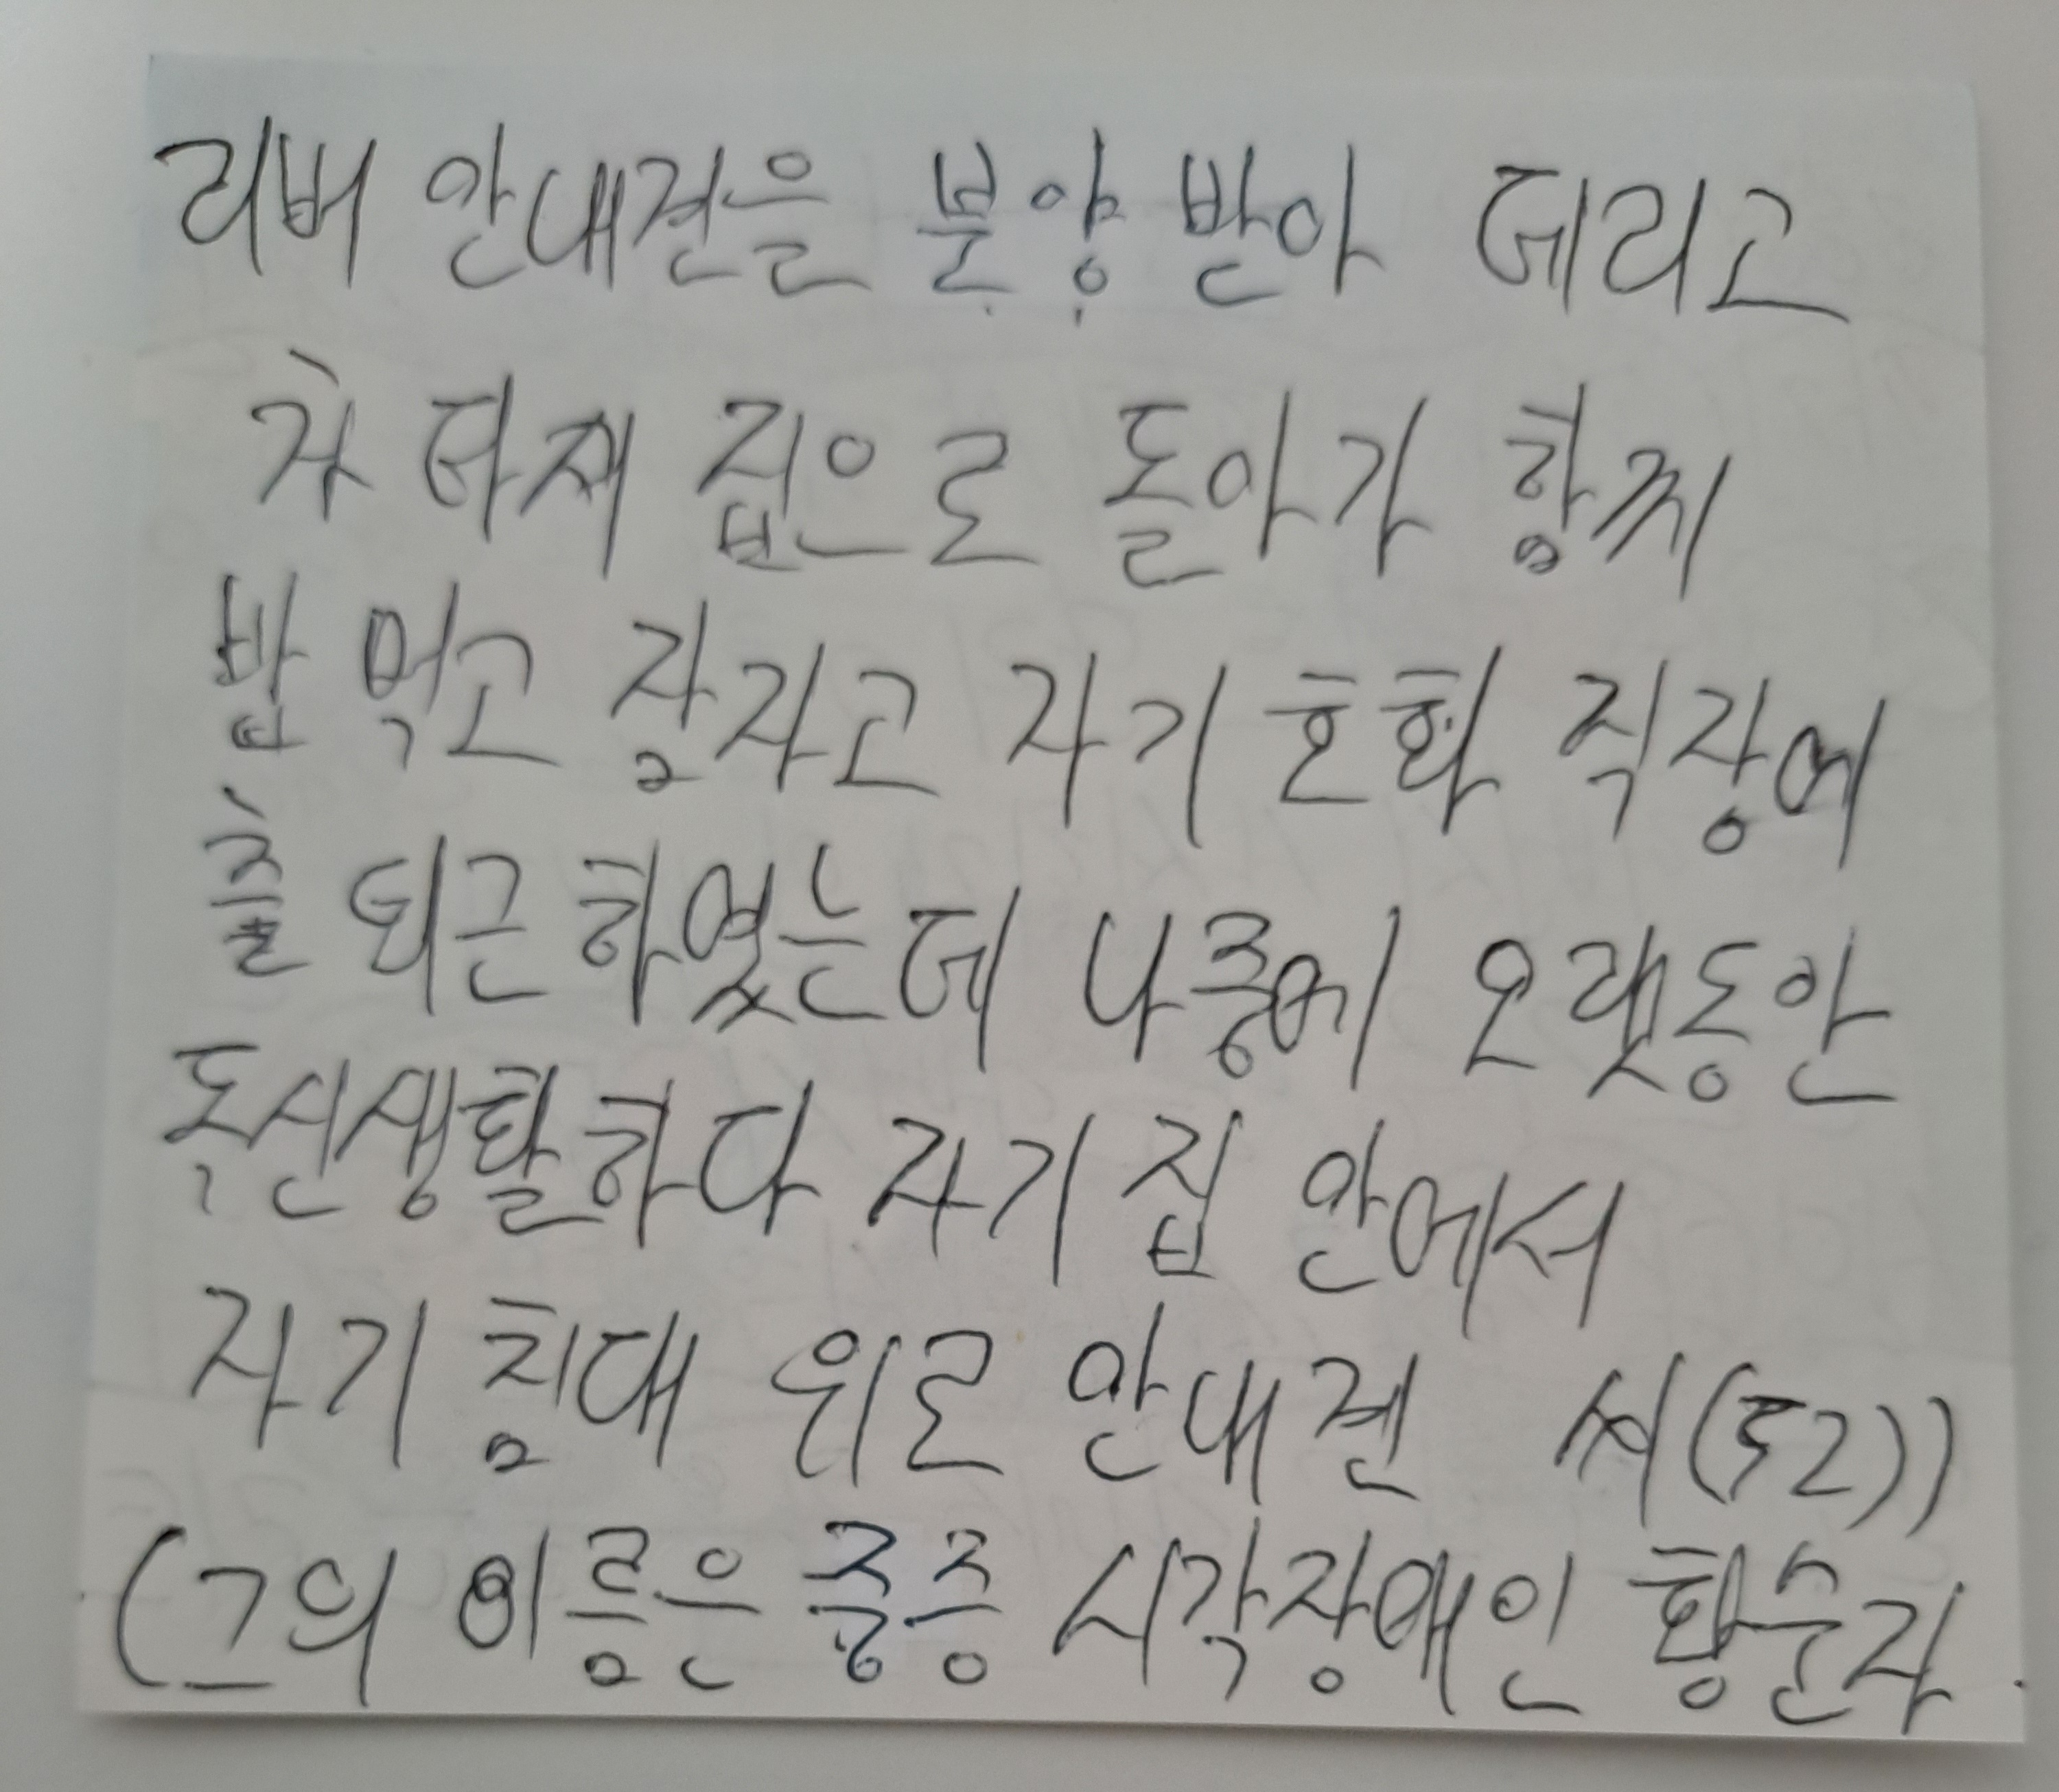 리버 안내견을 분양 받아 데리고
차 타재 집으로 돌아가 함께
밥 먹고 잠자고 자기 흐학 직장에
출퇴근 하였는데 나중에 오랫동안
독신생활하다 자기 집 안에서
자기 침대 위로 안내견 써(52))
(그의 이름은 중증 시각장애인 황순자.